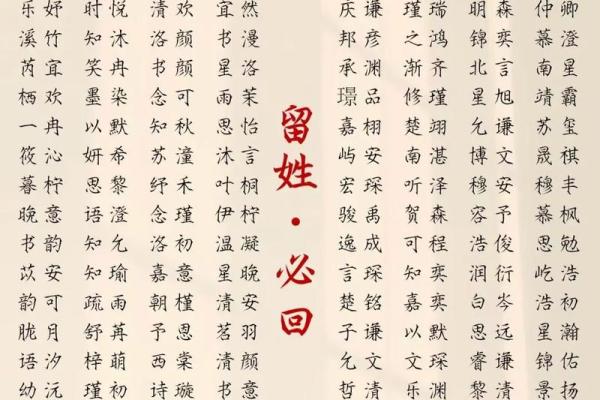 乐妤 时悦 清欢 宜然 庆谦 瑾瑞 明森 仲卿
溪竹 知沐 洛颜 书漫 邦彦 之鸿 锦奕 慕澄
芮宜 笑冉 书颜 星洛 承渊 渐齐 北言 南星
栖欢 墨染 念可 雨茉 璟品 修瑾 星旭 靖霸
一冉 以默 知秋 思怡 嘉栩 楚翊 允谦 苏玺
筱沁 妍希 苏潼 沐言 屿安 南湛 博文 晟祺
暮柠 思黎 纾禾 叶桐 宏琛 听泽 穆安 穆丰
晚意 语澄 念瑾 伊柠 骏禹 贺森 容予 慕枫
书韵 知允 洛初 温凝 逸成 可程 浩俊 思勉
苡安 知瑜 嘉意 星晚 言琛 知奕 润衍 屹浩
韵可 疏雨 朝槿 清安 楚铭 嘉奕 白岑 浩初
胧月 舒苒 予恩 茗羽 子谦 以默 思远 星瀚
语汐 梓萌 西棠 清颜 允文 文深 睿谦 锦佑
幼沅 瑾初 诗璇 书意 哲清 乐渊 黎清 景扬
留姓·必回